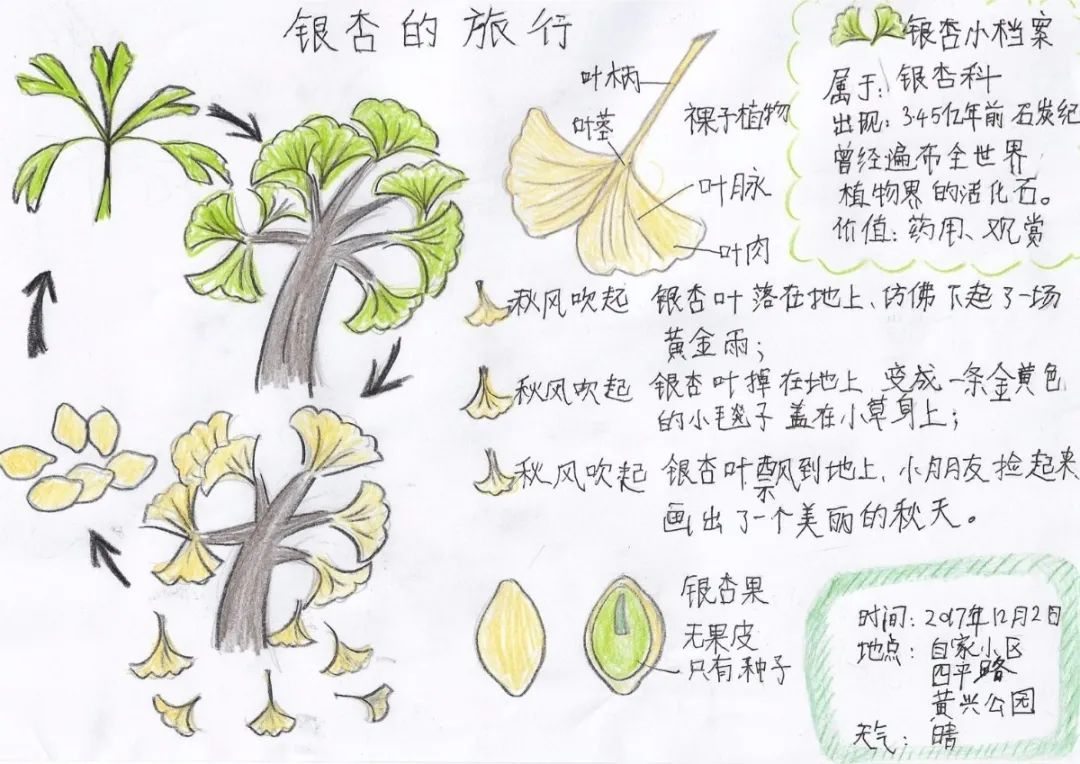 银杏的旅行
叶柄
叶茎
裸子植物
叶脉
叶肉
银杏小档案
属于：银杏科
出现：3.45亿年前石炭纪
曾经遍布全世界
植物界的活化石。
价值：药用、观赏
秋风吹起 银杏叶落在地上、仿佛下起了一场
黄金雨；
秋风吹起 银杏叶掉在地上 变成一条金黄色
的小毯子 盖在小草身上；
秋风吹起 银杏叶飘到地上，小朋友捡起来
画出了一个美丽的秋天。
银杏果
无果皮
只有种子
时间：2017年12月2日
地点：自家小区
四平路
黄兴公园
天气：晴